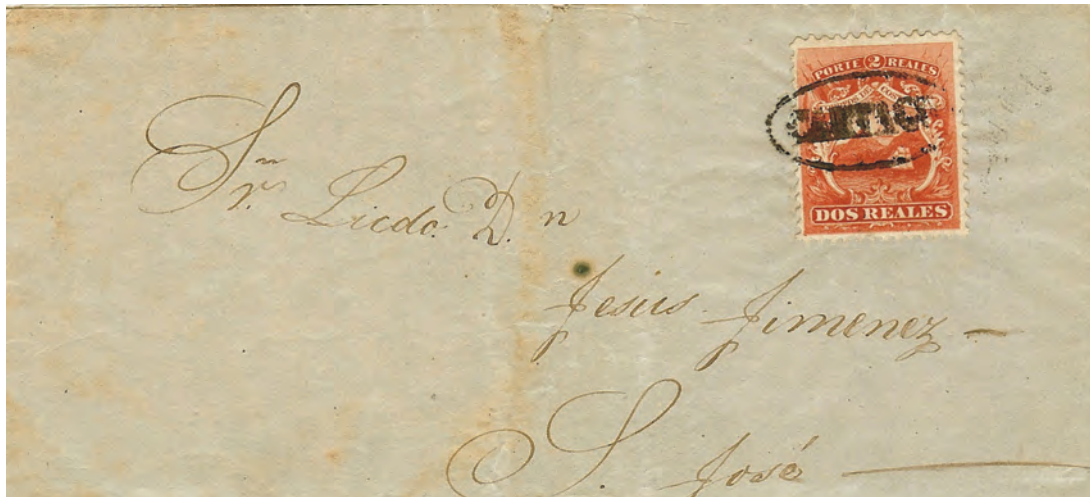 PORTE 2 REALES
DOS REALES
Sr.n Licdo. D.n
Jesús Jimenez —
S. José —